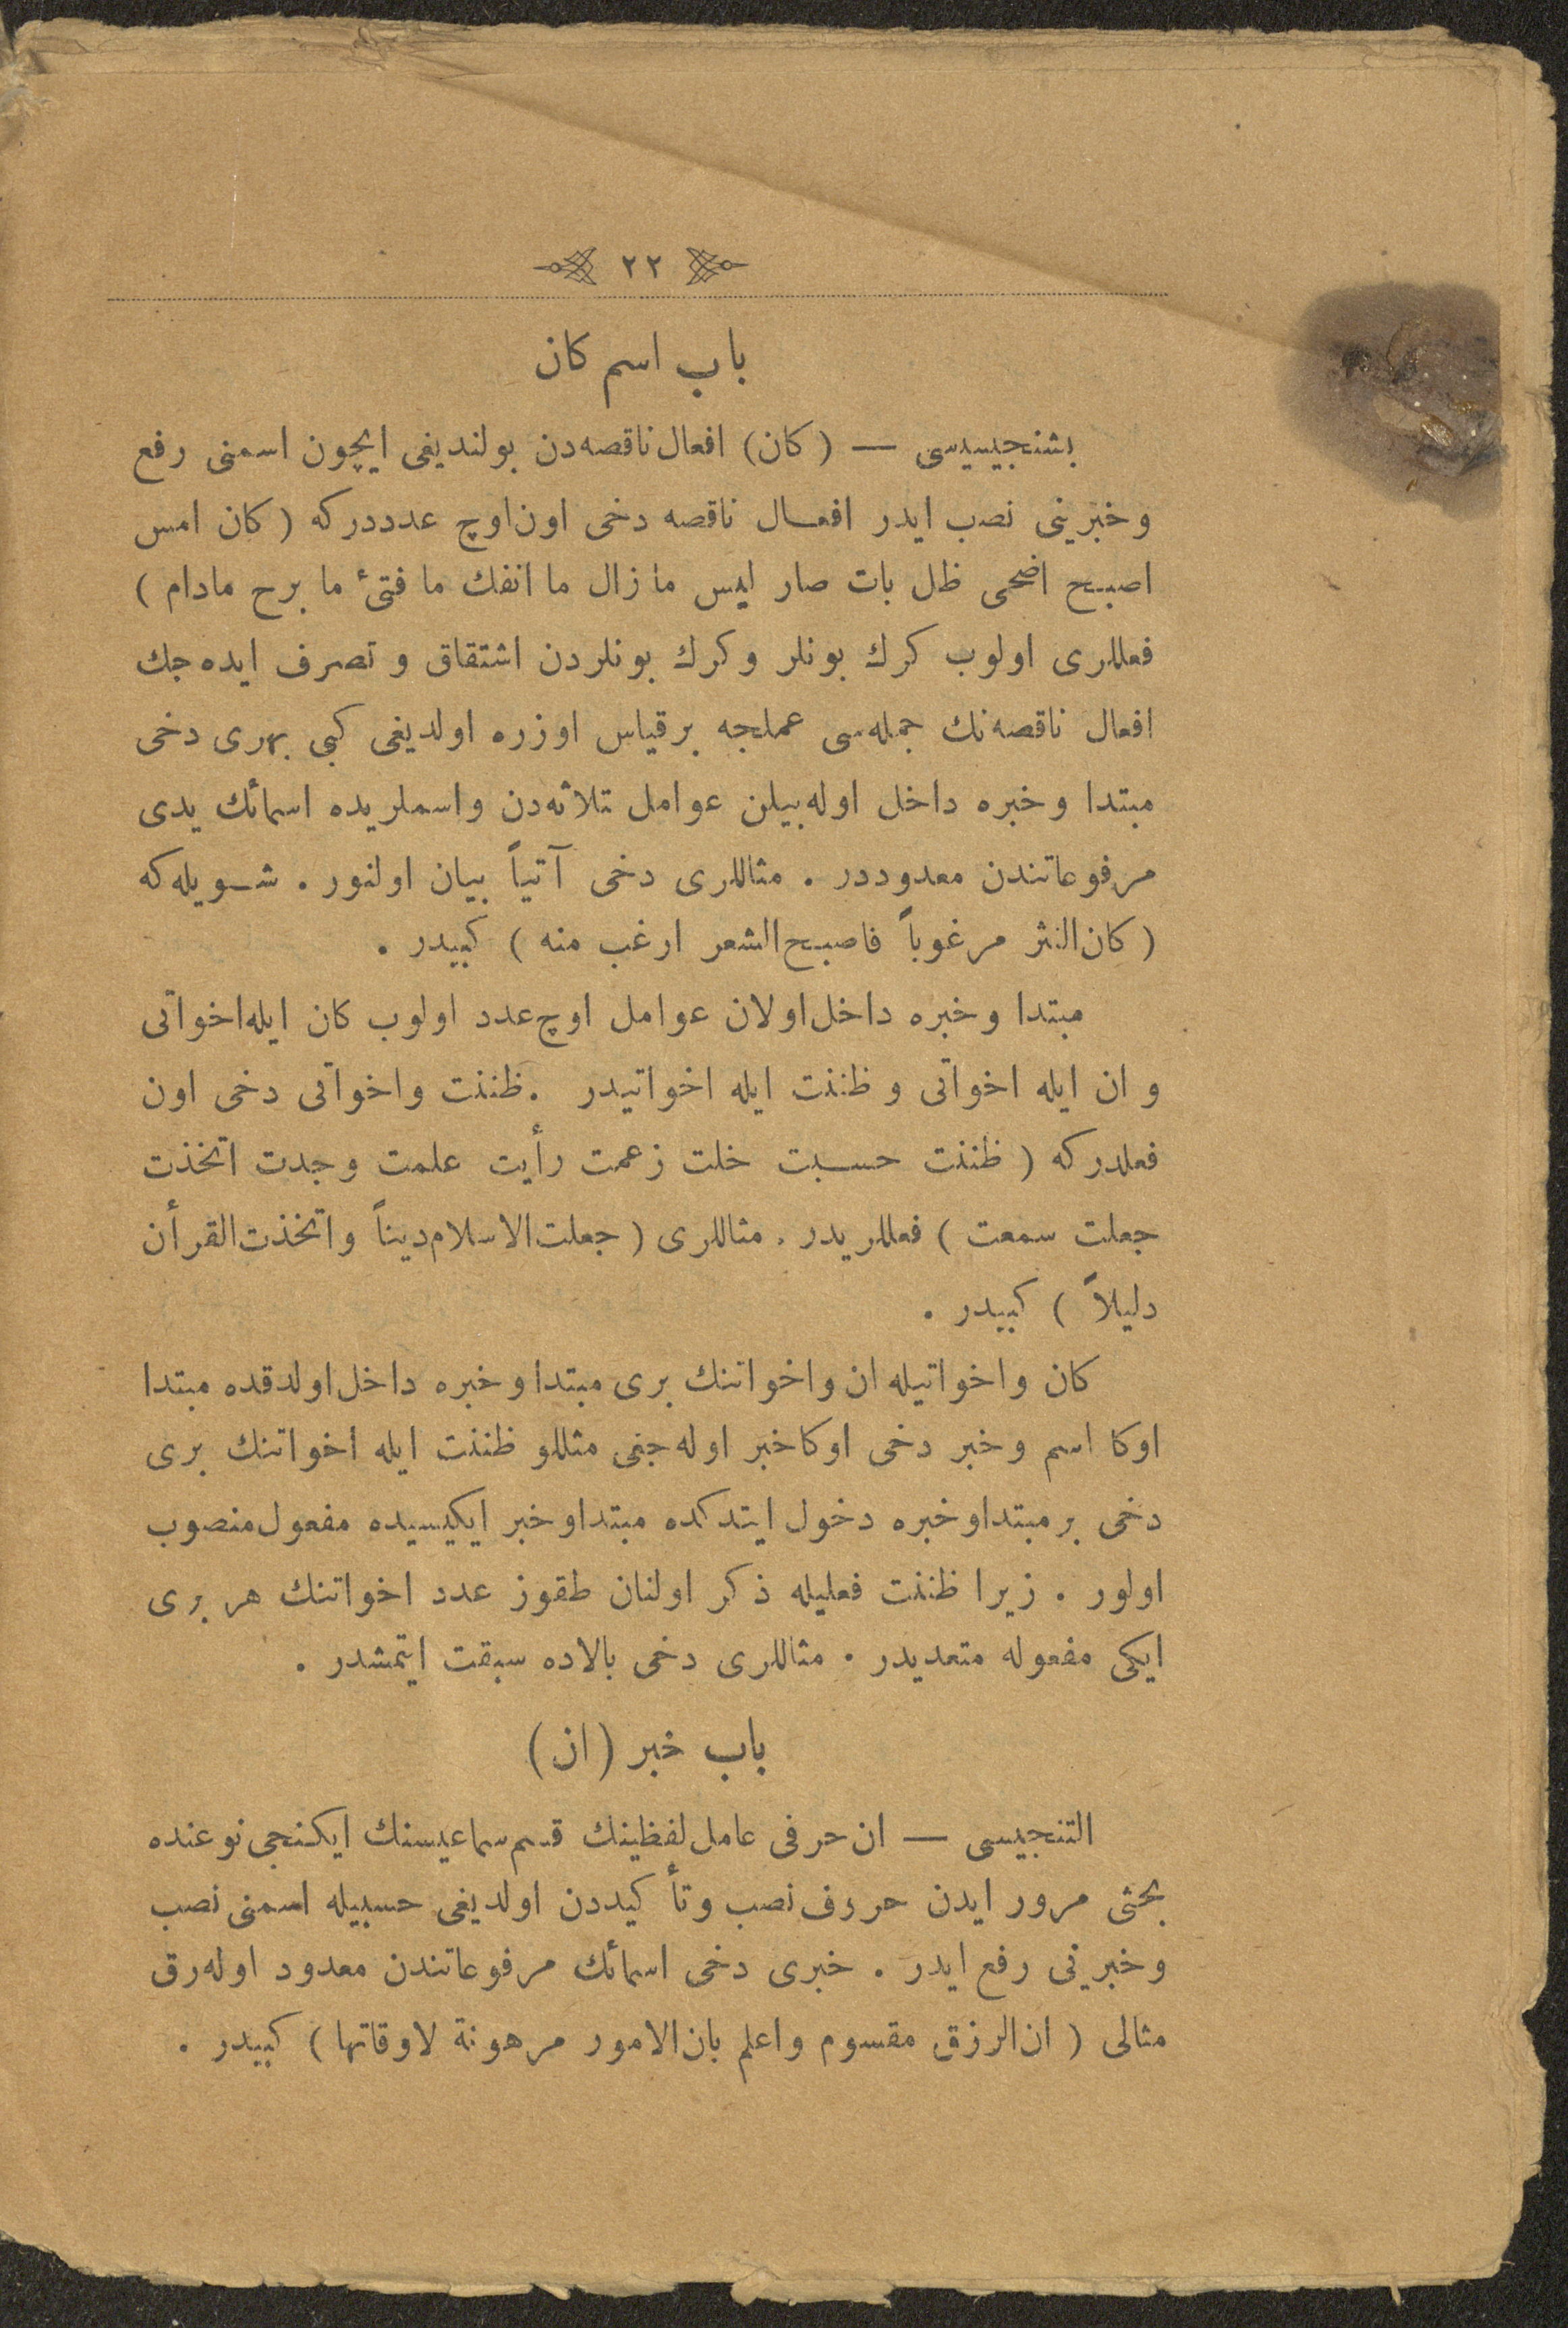 ٢٢
باب اسم كان
بشنجيسيسى — (كان) افعال ناقصه‌دن بولنديغى ايچون اسمنى رفع
وخبرينى نصب ايدر افعـال ناقصه دخى اون‌اوچ عدددركه (كان امس
اصبح اضحى ظل بات صار ليس ما زال ما انفك ما فتئ ما برح مادام)
فعللرى اولوب كرك بونلر وكرك بونلردن اشتقاق و تصرف ايده‌جك
افعال ناقصه‌نك جمله‌سى عملجه برقياس اوزره اولديغى كبى بهرى دخى
مبتدا وخبره داخل اوله‌بيلن عوامل ثلاثه‌دن واسملريده اسمائك يدى
مرفوعاتندن معدوددر . مثاللرى دخى آتياً بيان اولنور . شـويله‌كه
(كان‌النثر مرغوباً فاصبح‌الشعر ارغب منه) كبيدر .
مبتدا وخبره داخل‌اولان عوامل اوچ‌عدد اولوب كان ايله‌اخواتى
و ان ايله اخواتى و ظننت ايله اخواتيدر . ظننت واخواتى دخى اون
فعلدركه (ظننت حسـبت خلت زعمت رأيت علمت وجدت اتخذت
جعلت سمعت) فعللريدر . مثاللرى (جعلت‌الاسلام‌ديناً واتخذت‌القرأن
دليلاً) كبيدر .
كان واخواتيله ان واخواتنك برى مبتدا وخبره داخل‌اولدقده مبتدا
اوكا اسم وخبر دخى اوكاخبر اوله‌جغى مثللو ظننت ايله اخواتنك برى
دخى برمبتداوخبره دخول ايتدكده مبتداوخبر ايكيسيده مفعول‌منصوب
اولور . زيرا ظننت فعليله ذكر اولنان طقوز عدد اخواتنك هر برى
ايكى مفعوله متعديدر . مثاللرى دخى بالاده سبقت ايتمشدر .
باب خبر (ان)
التنجيسى — ان حرفى عامل لفظينك قسم‌سماعيسنك ايكنجى‌نوعنده
بحثى مرور ايدن حروف‌نصب وتأكيددن اولديغى حسبيله اسمنى نصب
وخبرينى رفع ايدر . خبرى دخى اسمائك مرفوعاتندن معدود اوله‌رق
مثالى (ان‌الرزق مقسوم واعلم بان‌الامور مرهونة لاوقاتها) كبيدر .